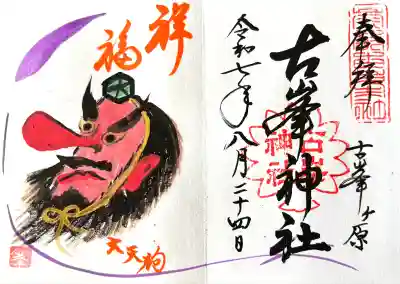 奉拝
古峯ヶ原
古峯神社
令和七年八月二十四日
祥
福
大天狗